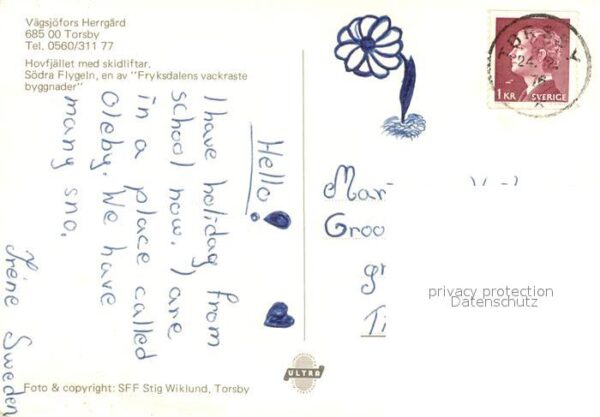 Vägsjöfors Herrgård
685 00 Torsby
Tel. 0560/311 77
Hovfjället med skidliftar.
Södra Flygeln, en av "Fryksdalens vackraste
byggnader"
Hello!
I have holiday from
school now. I are
in a place called
Oleby. We have
many sno.
Irene Sweden
Foto & copyright: SFF Stig Wiklund, Torsby
ULTRA
TORSBY
24.
76
1 KR SVERIGE
Mar
Groo
gr
Ti
privacy protection
Datenschutz